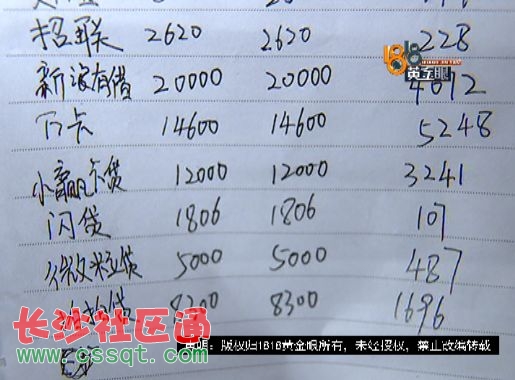 招联 2620 2620 228
1818
黄金眼
新浪有借 20000 20000 4672
万卡 14600 14600 5248
小赢卡贷 12000 12000 3241
闪贷 1806 1806 107
微粒贷 5000 5000 487
8300 8300 1696
长沙社区通
www.cssqt.com
声明：版权归1818黄金眼所有，未经授权，禁止改编转载